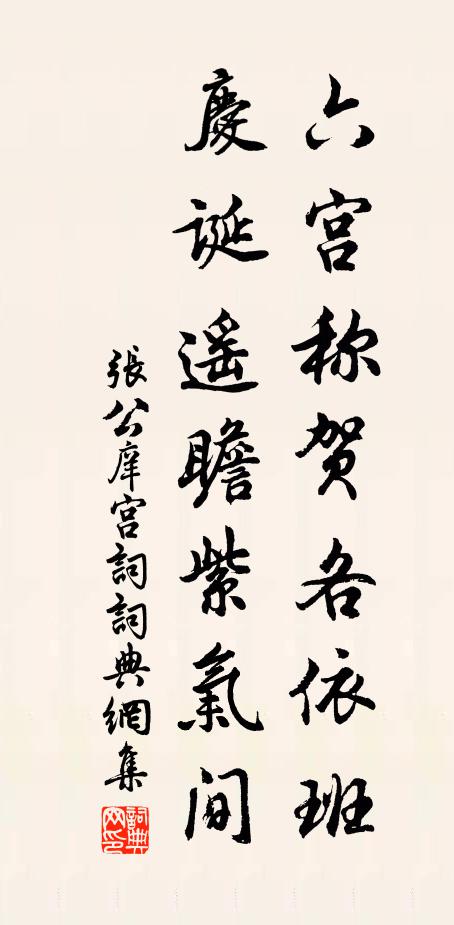 六宫称贺各依班
慶誕遥瞻紫氣间
張公庠宫詞詞典網集
詞典网印